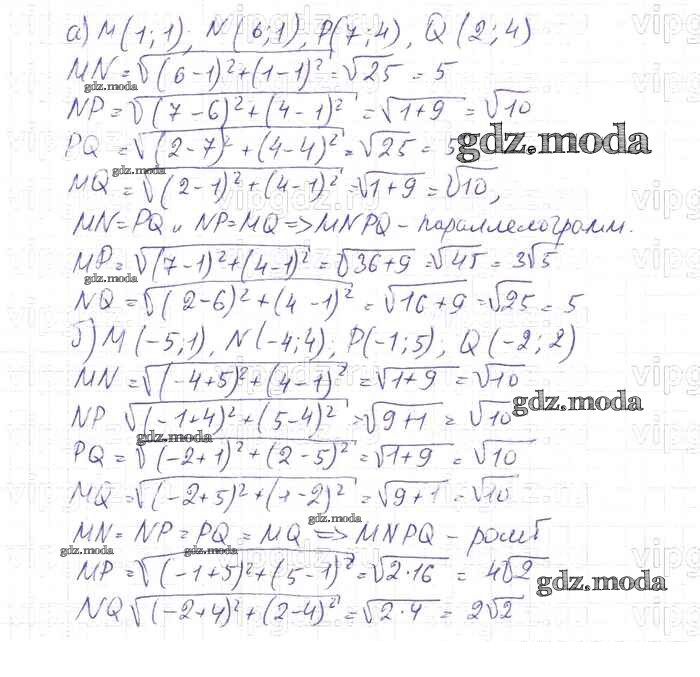 а) M(1;1), N(6;1), P(7;4), Q(2;4)
MN = √(6-1)²+(1-1)² = √25 = 5
gdz.moda
NP = √(7-6)²+(4-1)² = √1+9 = √10
PQ = √(2-7)²+(4-4)² = √25 = 5
gdz.moda
MQ = √(2-1)²+(4-1)² = √1+9 = √10,
gdz.moda
MN=PQ и NP=MQ => MNPQ - параллелограмм.
MP = √(7-1)²+(4-1)² = √36+9 = √45 = 3√5
gdz.moda
NQ = √(2-6)²+(4-1)² = √16+9 = √25 = 5
б) M(-5;1), N(-4;4), P(-1;5), Q(-2;2)
MN = √(-4+5)²+(4-1)² = √1+9 = √10
gdz.moda
NP √(-1+4)²+(5-4)² = √9+1 = √10
gdz.moda
PQ = √(-2+1)²+(2-5)² = √1+9 = √10
MQ = √(-2+5)²+(1-2)² = √9+1 = √10
gdz.moda
MN = NP = PQ = MQ => MNPQ - ромб
gdz.moda
gdz.moda
MP = √(-1+5)²+(5-1)² = √2·16 = 4√2
gdz.moda
NQ √(-2+4)²+(2-4)² = √2·4 = 2√2